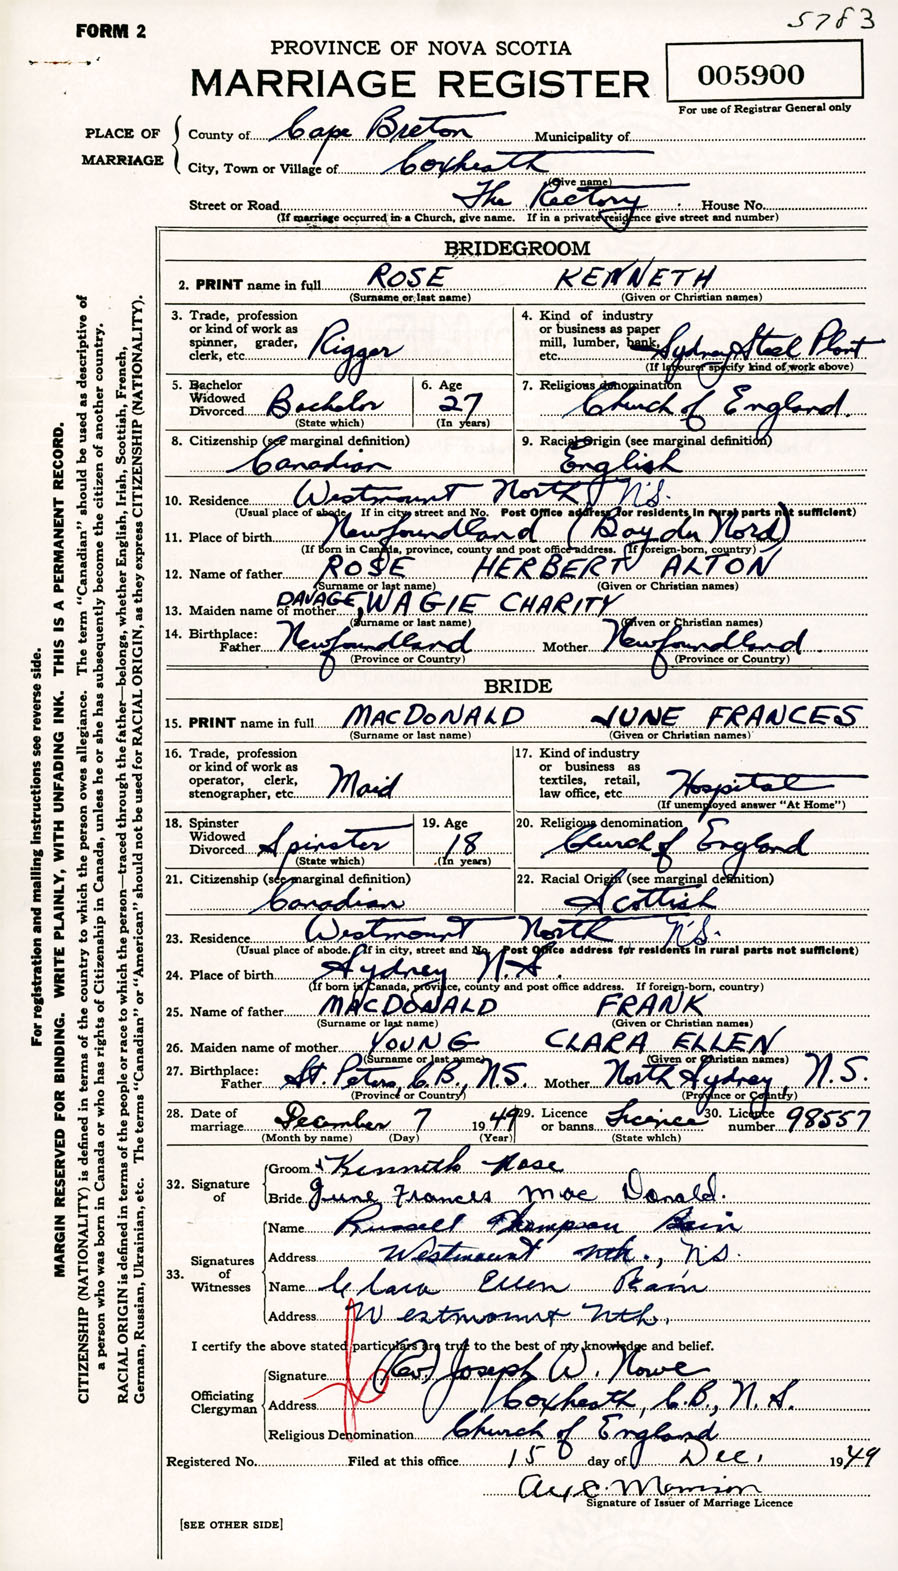 5783
FORM 2
PROVINCE OF NOVA SCOTIA
MARRIAGE REGISTER
005900
For use of Registrar General only
PLACE OF MARRIAGE
County of Cape Breton Municipality of
City, Town or Village of Coxheath
(Give name)
Street or Road The Rectory House No.
(If marriage occurred in a Church, give name. If in a private residence give street and number)
BRIDEGROOM
2. PRINT name in full ROSE KENNETH
(Surname or last name) (Given or Christian names)
3. Trade, profession or kind of work as spinner, grader, clerk, etc. Rigger
4. Kind of industry or business as paper mill, lumber, bank, etc. Sydney Steel Plant
(If labourer specify kind of work above)
5. Bachelor Widowed Divorced Bachelor
(State which)
6. Age 27
(In years)
7. Religious denomination
Church of England.
8. Citizenship (see marginal definition)
Canadian
9. Racial Origin (see marginal definition)
English
10. Residence Westmount North N.S.
(Usual place of abode. If in city, street and No. Post Office address for residents in rural parts not sufficient)
11. Place of birth Newfoundland (Bay du Nord)
(If born in Canada, province, county and post office address. If foreign-born, country)
12. Name of father ROSE HERBERT ALTON
(Surname or last name) (Given or Christian names)
13. Maiden name of mother DAVAGE, WAGIE CHARITY
(Surname or last name) (Given or Christian names)
14. Birthplace: Father Newfoundland Mother Newfoundland
(Province or Country) (Province or Country)
BRIDE
15. PRINT name in full MACDONALD JUNE FRANCES
(Surname or last name) (Given or Christian names)
16. Trade, profession or kind of work as operator, clerk, stenographer, etc. Maid
17. Kind of industry or business as textiles, retail, law office, etc. Hospital
(If unemployed answer "At Home")
18. Spinster Widowed Divorced Spinster
(State which)
19. Age 18
(In years)
20. Religious denomination
Church of England
21. Citizenship (see marginal definition)
Canadian
22. Racial Origin (see marginal definition)
Scottish
23. Residence Westmount North N.S.
(Usual place of abode. If in city, street and No. Post Office address for residents in rural parts not sufficient)
24. Place of birth Sydney N.S.
(If born in Canada, province, county and post office address. If foreign-born, country)
25. Name of father MACDONALD FRANK
(Surname or last name) (Given or Christian names)
26. Maiden name of mother YOUNG CLARA ELLEN
(Surname or last name) (Given or Christian names)
27. Birthplace: Father St. Peters, C.B., N.S. Mother North Sydney, N.S.
(Province or Country) (Province or Country)
28. Date of marriage December 7 1949 29. Licence or banns. Licence 30. Licence number 98557
(Month by name) (Day) (Year) (State which)
32. Signature of
Groom Kenneth Rose
Bride June Frances Mac Donald.
33. Signatures of Witnesses
Name Russell Thompson Bain
Address Westmount Nth., N.S.
Name Clara Ellen Bain
Address Westmount Nth.
I certify the above stated particulars are true to the best of my knowledge and belief.
Officiating Clergyman
Signature (Rev.) Joseph W. Nowe
Address Coxheath, C.B., N.S.
Religious Denomination Church of England
Registered No. Filed at this office 15 day of Dec. 1949
Morrison
Signature of Issuer of Marriage Licence
[SEE OTHER SIDE]
For registration and mailing instructions see reverse side.
MARGIN RESERVED FOR BINDING. WRITE PLAINLY, WITH UNFADING INK. THIS IS A PERMANENT RECORD.
CITIZENSHIP (NATIONALITY) is defined in terms of the country to which the person owes allegiance. The term "Canadian" should be used as descriptive of
a person who was born in Canada or who has rights of Citizenship in Canada, unless he or she has subsequently become the citizen of another country.
RACIAL ORIGIN is defined in terms of the people or race to which the person—traced through the father—belongs, whether English, Irish, Scottish, French,
German, Russian, Ukrainian, etc. The terms "Canadian" or "American" should not be used for RACIAL ORIGIN, as they express CITIZENSHIP (NATIONALITY).